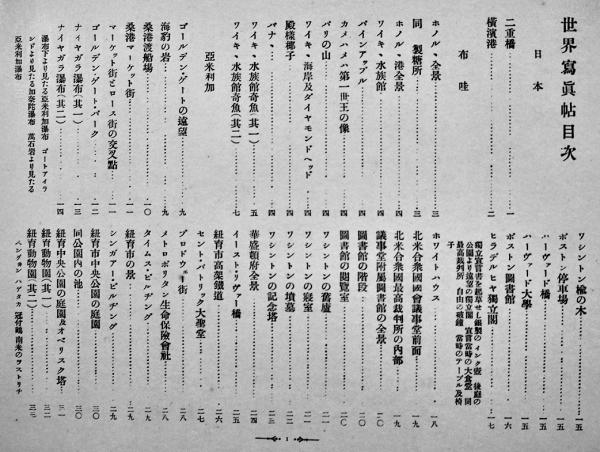 世界寫眞帖目次
日本
二重橋………一
橫濱港………二
布哇
ホノルヽ全景………三
同 製糖所………三
ホノルヽ港全景………四
パインアップル………四
ワイキヽ水族館………四
カメハメハ第一世王の像………四
パリの山………四
ワイキヽ海岸及ダイヤモンドヘッド………四
殿樣椰子………四
バナヽ………四
ワイキヽ水族館奇魚(其一)………五
ワイキヽ水族館奇魚(其二)………七
亞米利加
ゴールデン・ゲートの遠望………九
海豹の岩………九
桑港渡船場………一〇
桑港マーケット街………一一
マーケット街とロース街の交叉點………一一
ゴールデン・ゲート・パーク………一二
ナイヤガラ瀑布(其一)………一三
ナイヤガラ瀑布(其二)………一四
瀑布下より見たる亞米利加瀑布 ゴートアイランドより見たる加奈陀瀑布 萬石岩より見たる亞米利加瀑布
ワシントン楡の木………一五
ボストン停車場………一五
ハーヴァード橋………一五
ハーヴァード大學………一五
ボストン圖書館………一六
ヒラデルヒヤ獨立閣………一七
獨立宣言書を起草せし銀製のインク壺 後庭の公園より遠望の獨立閣 宣言當時の大食堂 同最高裁判所 自由の破鐘 當時のテーブル及椅子
ホワイトハウス………一八
北米合衆國國會議事堂前面………一九
北米合衆國最高裁判所の內部………一九
議事堂附屬圖書館の全景………二〇
圖書館の階段………二〇
圖書館の閱覽室………二〇
ワシントンの舊廬………二一
ワシントンの寢室………二一
ワシントンの墳墓………二二
ワシントンの記念塔………二三
華盛頓府全景………二四
イースト・リヴァー橋………二五
紐育市高架鐵道………二六
セント・パトリック大聖堂………二七
ブロドウェー街………二八
メトロポリタン生命保險會社………二八
タイムス・ビルヂング………二八
紐育市の景………二九
シンガアー・ビルヂング………二九
紐育市中央公園の庭園………三〇
同公園內の池………三〇
紐育中央公園の庭園及オベリスク塔………三一
紐育動物園(其一)………三二
紐育動物園(其二)………三三
ペンギン ハゲタカ 冠付鶴 南米のヲストリチ
1